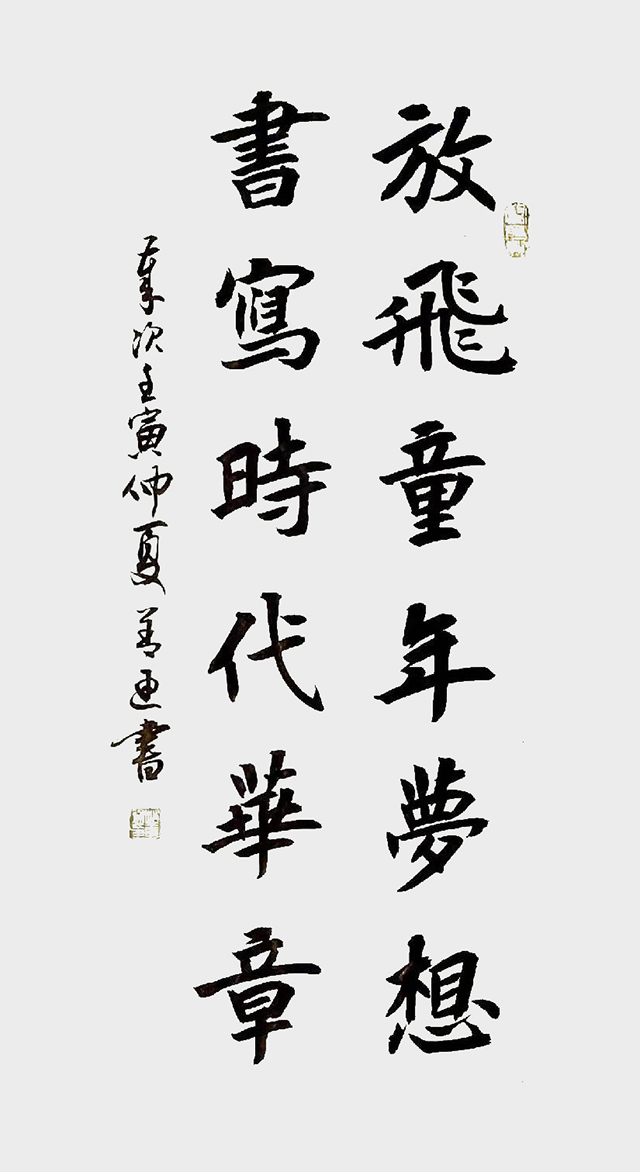 放飛童年夢想
書寫時代華章
歲次壬寅仲夏善迪書